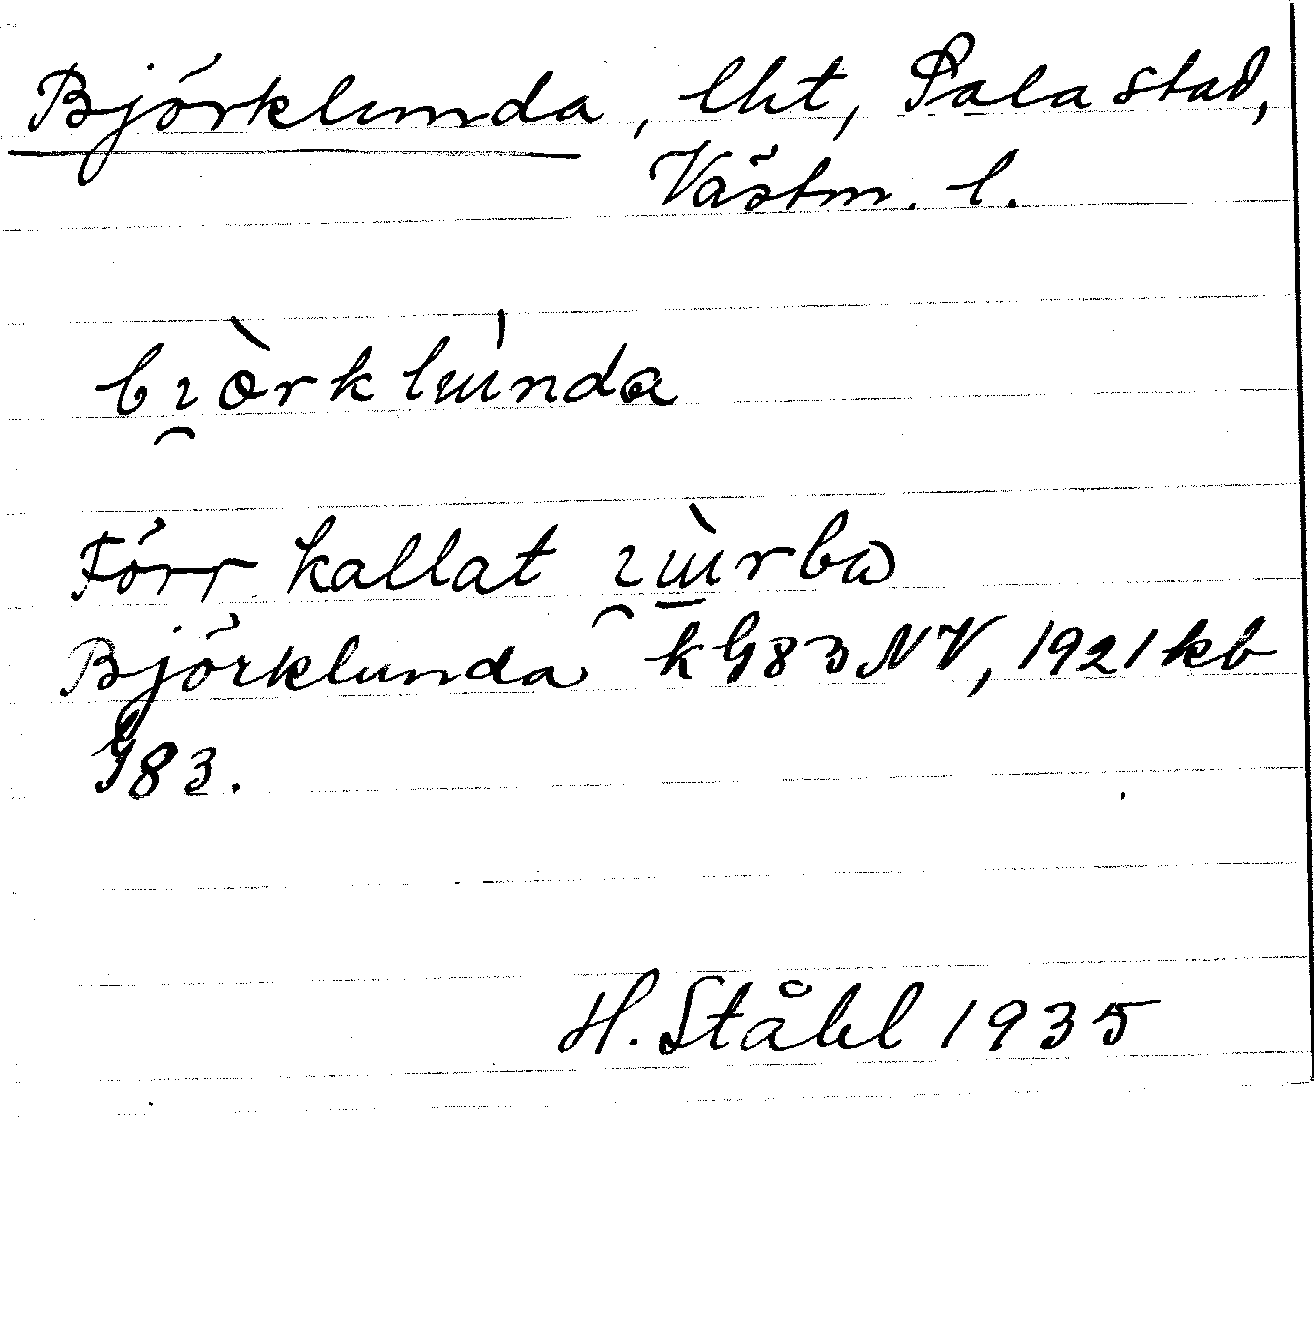 Björklunda, lht, Sala stad,
Västm. l.
bɿòrklúnda
Förr kallat
Björklunda k G83 NV, 1921 kb
G83.
H. Ståhl 1935